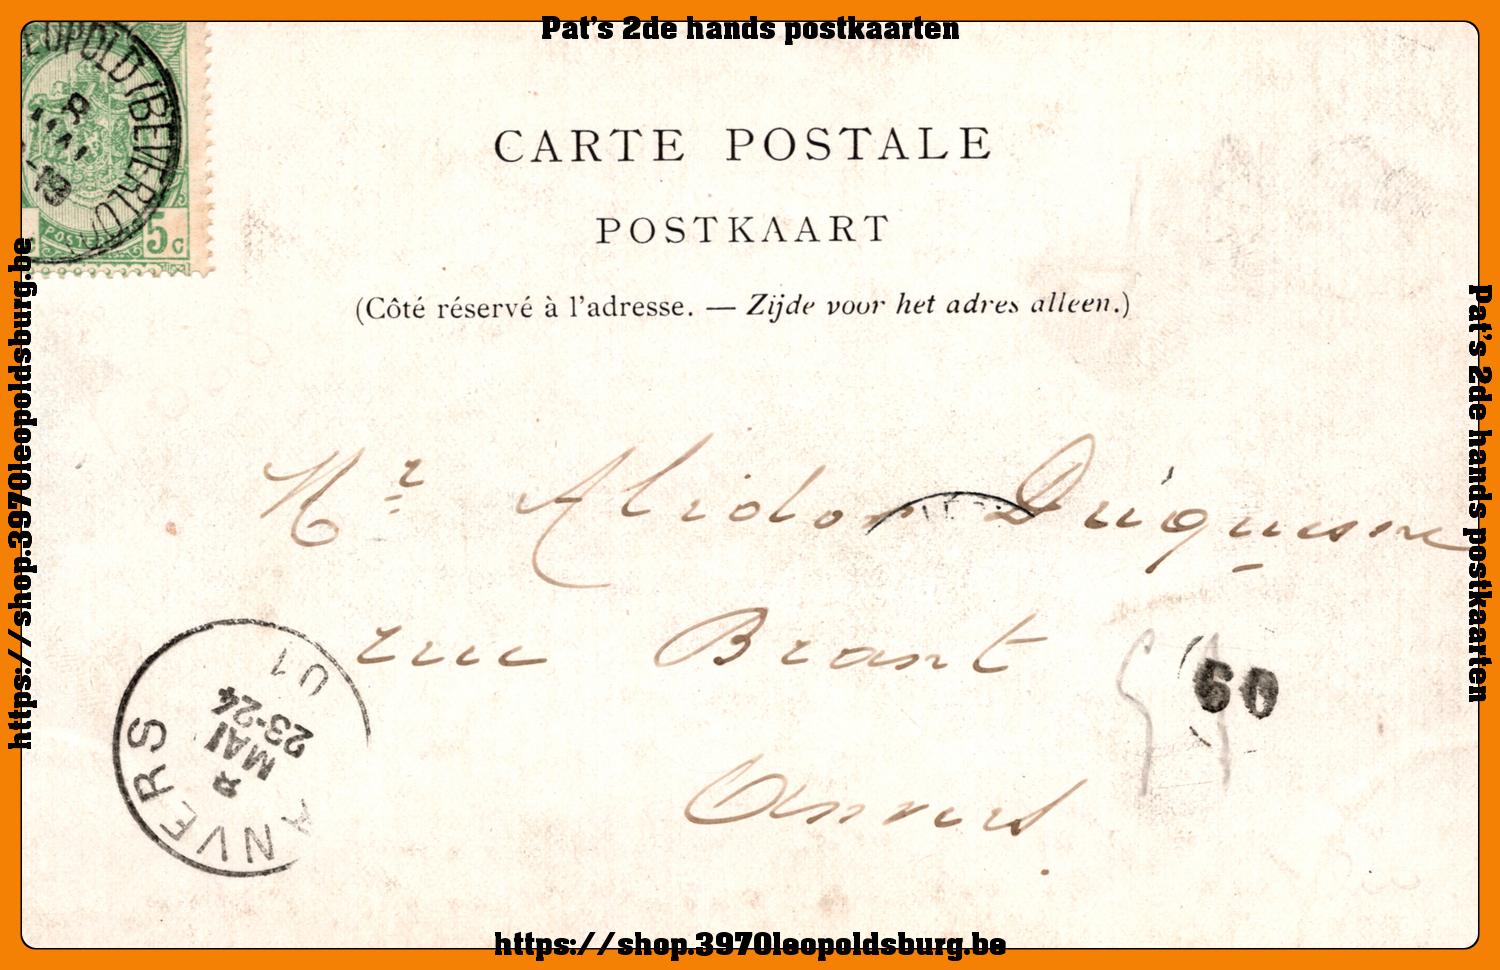 Pat's 2de hands postkaarten
LEOPOLD (BEVERLO
8
MAI
19
POSTE
5c
CARTE POSTALE
POSTKAART
(Côté réservé à l'adresse. — Zijde voor het adres alleen.)
Mr Alidor Duquesne
rue Brant
Anvers
ANVERS
8
MAI
23-24
01
60
https://shop.3970leopoldsburg.be
Pat's 2de hands postkaarten
https://shop.3970leopoldsburg.be